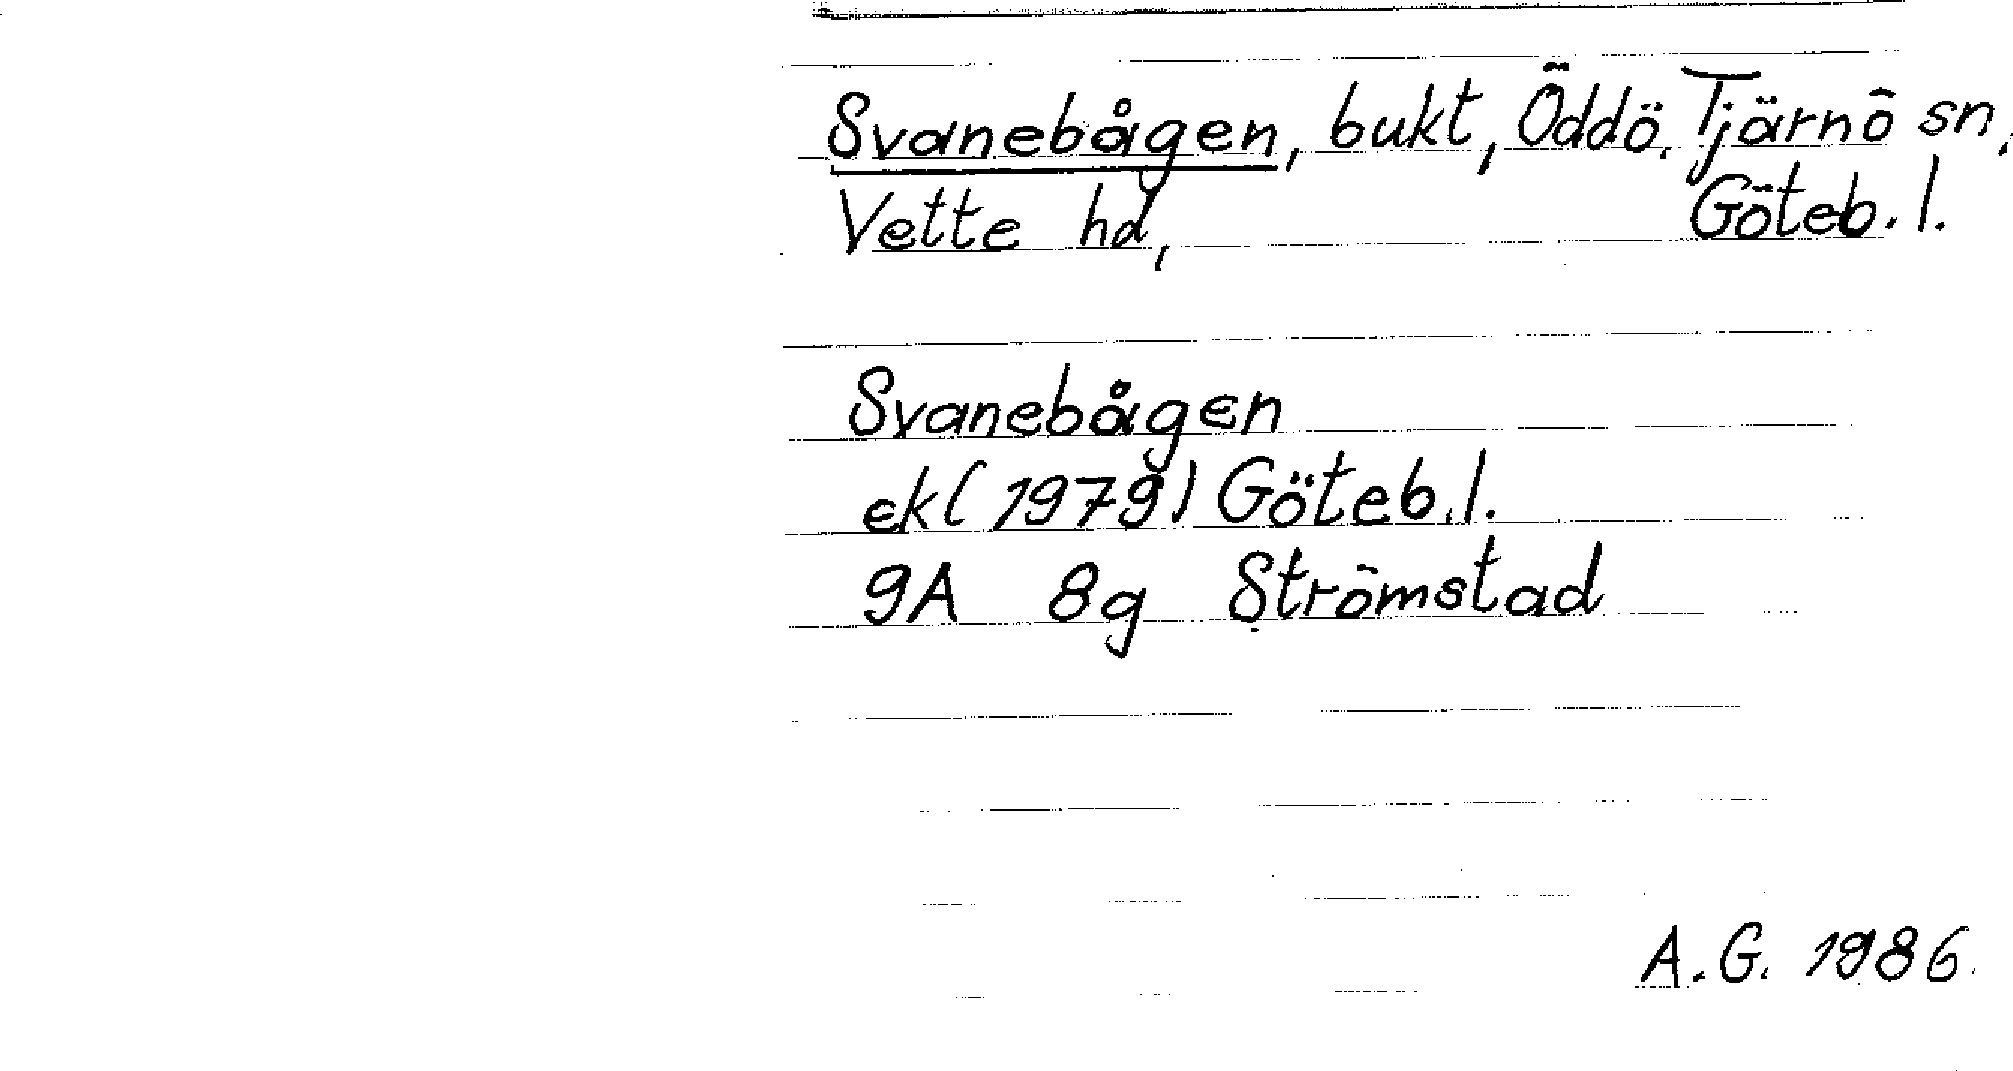 Svanebågen, bukt, Öddö. Tjärnö sn,
Vette hd, Göteb. l.
Svanebågen
ek (1979) Göteb. l.
9A 8g Strömstad
A.G. 1986.